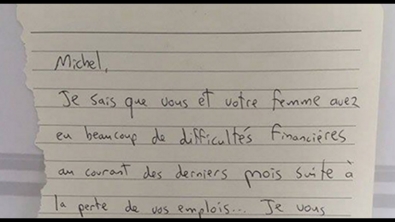 Michel,
Je sais que vous et votre femme avez
eu beaucoup de difficultés financières
au courant des derniers mois suite à
la perte de vos emplois... Je vous